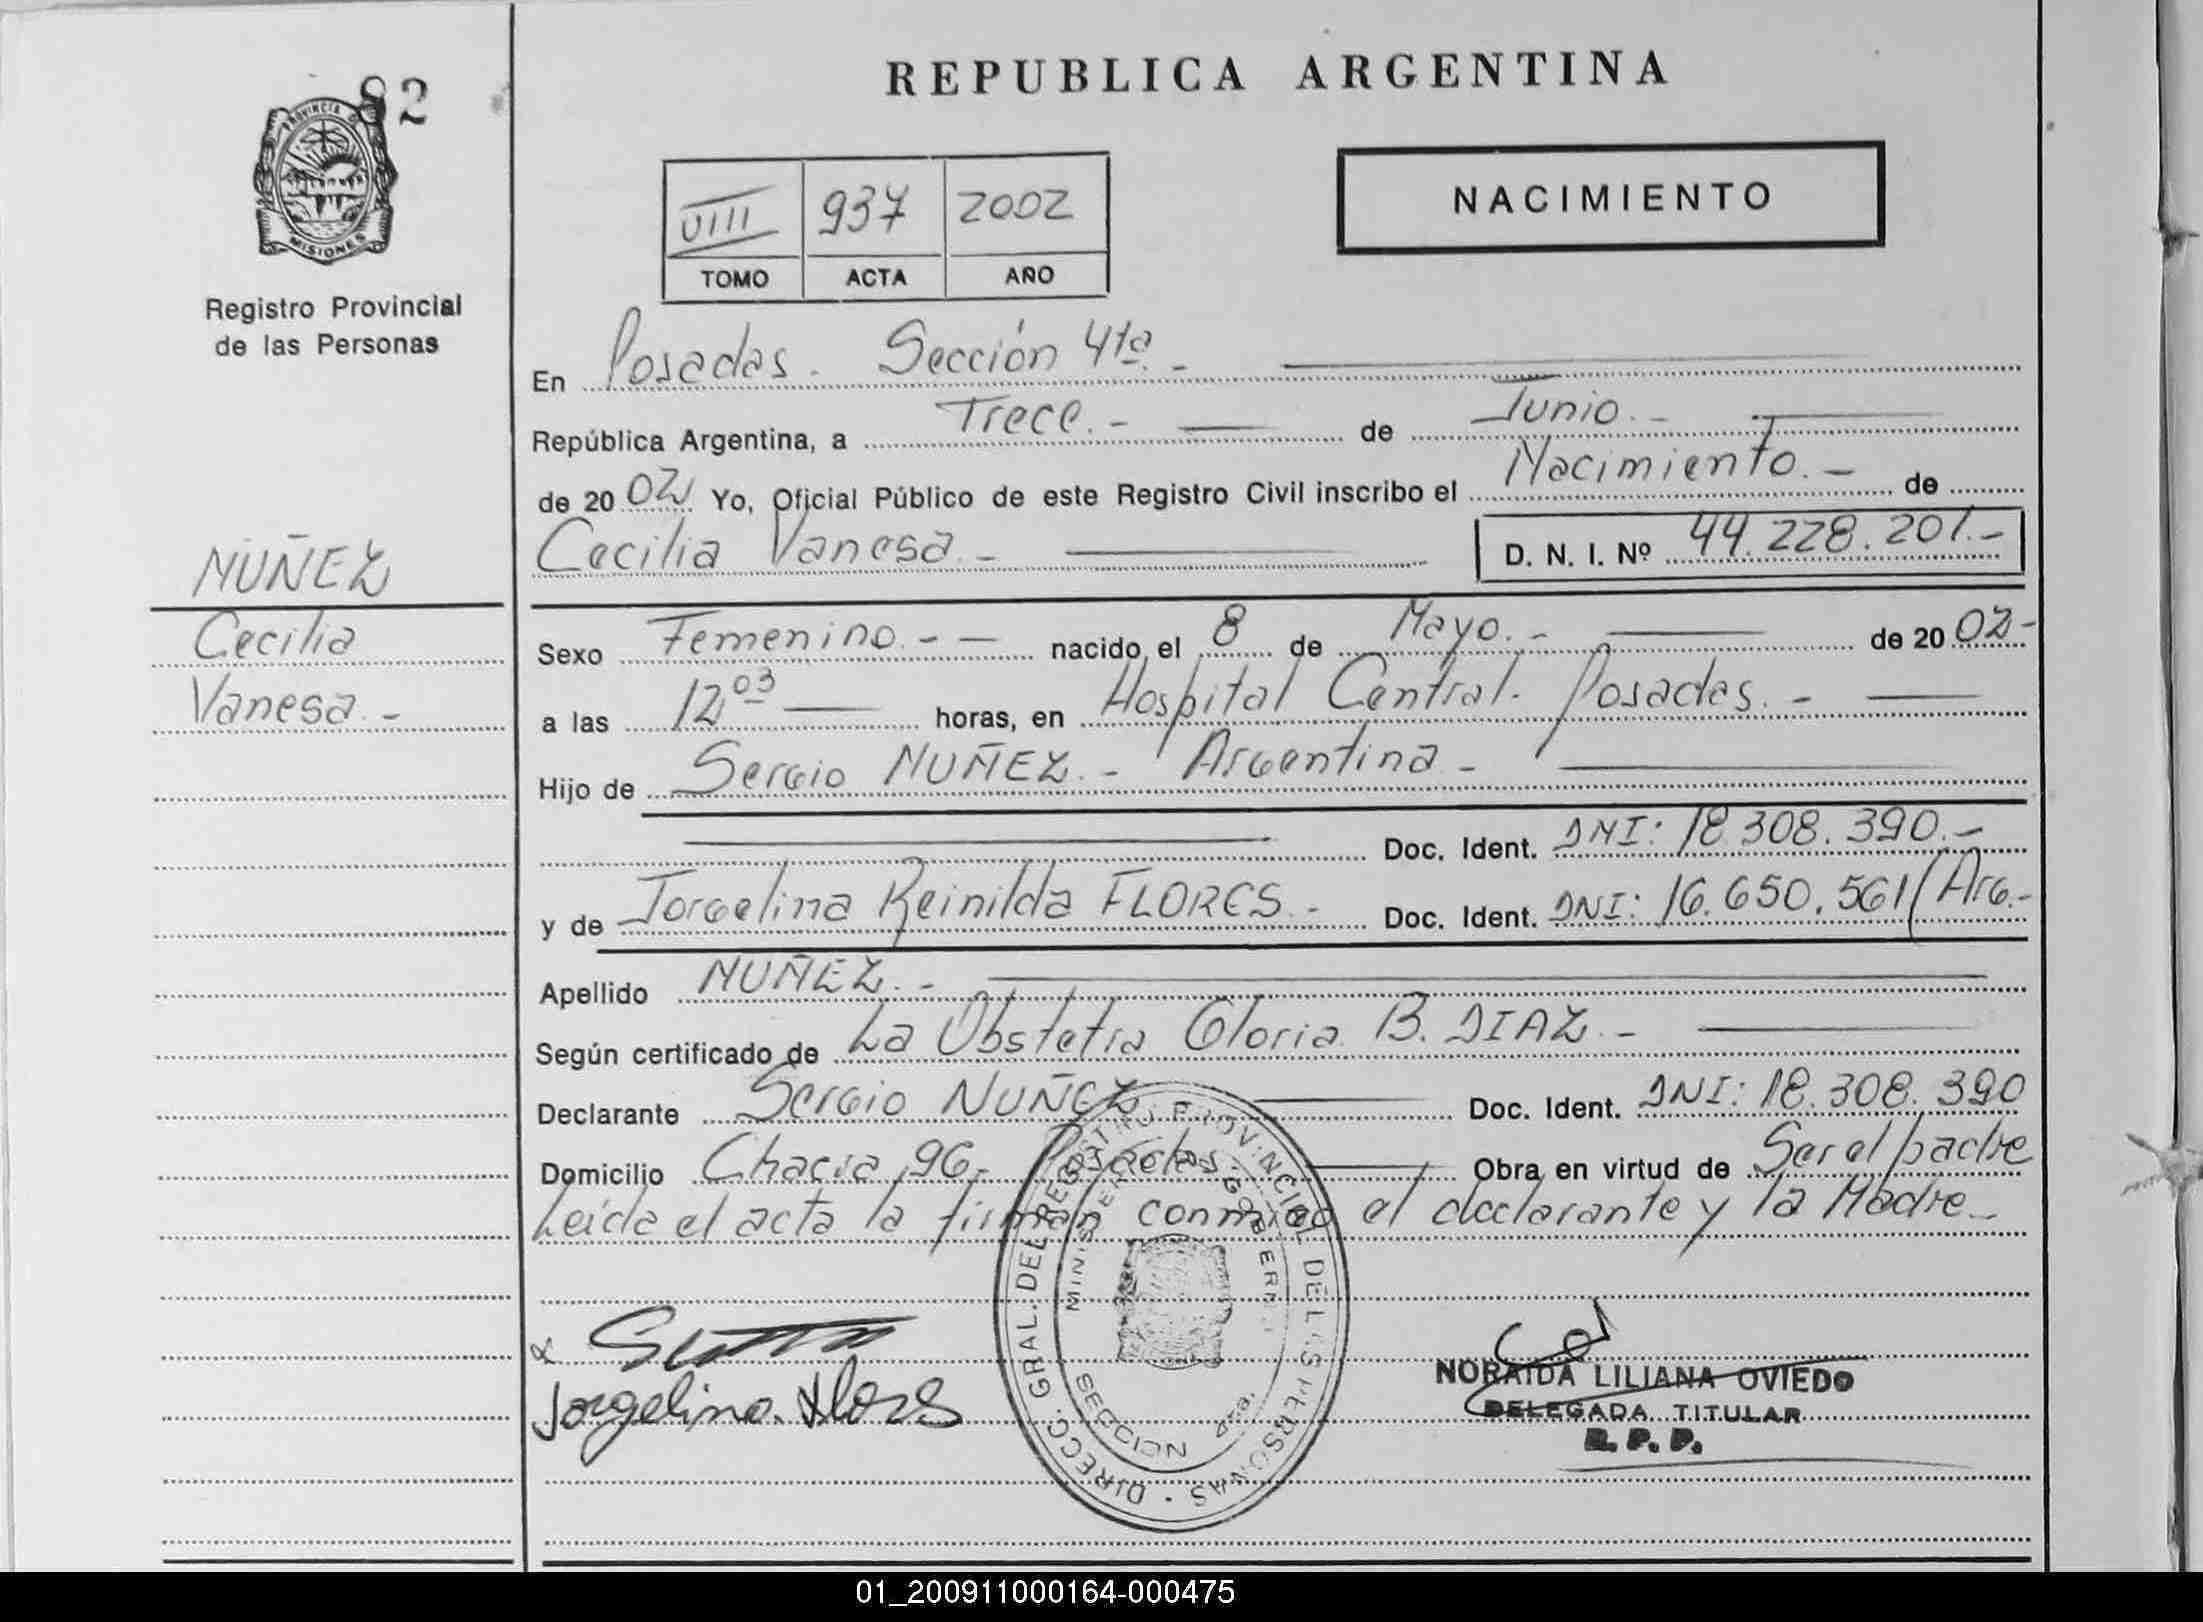 REPUBLICA ARGENTINA
82
PROVINCIA DE
MISIONES
Registro Provincial
de las Personas
NACIMIENTO
VIII 937 2002
TOMO ACTA AÑO
En Posadas. Sección 4ta.-
República Argentina, a Trece.- de Junio.-
de 20 02 Yo, Oficial Público de este Registro Civil inscribo el Nacimiento.- de
Cecilia Vanesa.- D. N. I. Nº 44.228.201.-
NUÑEZ
Cecilia
Vanesa.-
Sexo Femenino.- - nacido el 8 de Mayo.- de 20 02-
a las 12,03 horas, en Hospital Central. Posadas.-
Hijo de Sergio NUÑEZ.- Argentina-
Doc. Ident. DNI: 18.308.390.-
y de Jorgelina Reinilda FLORES.- Doc. Ident. DNI: 16.650.561/Arg.-
Apellido NUÑEZ.-
Según certificado de La Obstetra Gloria B. DIAZ.-
Declarante Sergio NUÑEZ Doc. Ident. DNI: 18.308.390
Domicilio Chacra 96- Posadas. Obra en virtud de Ser el padre
Leída el acta la firman conmigo el declarante y la Madre-
DIRECC. GRAL. DEL REGISTRO PROVINCIAL DE LAS PERSONAS
MINISTERIO GOBIERNO
SECCION 4ta.
Jorgelina Flores
NORAIDA LILIANA OVIEDO
DELEGADA TITULAR
R. P. P.
01_200911000164-000475